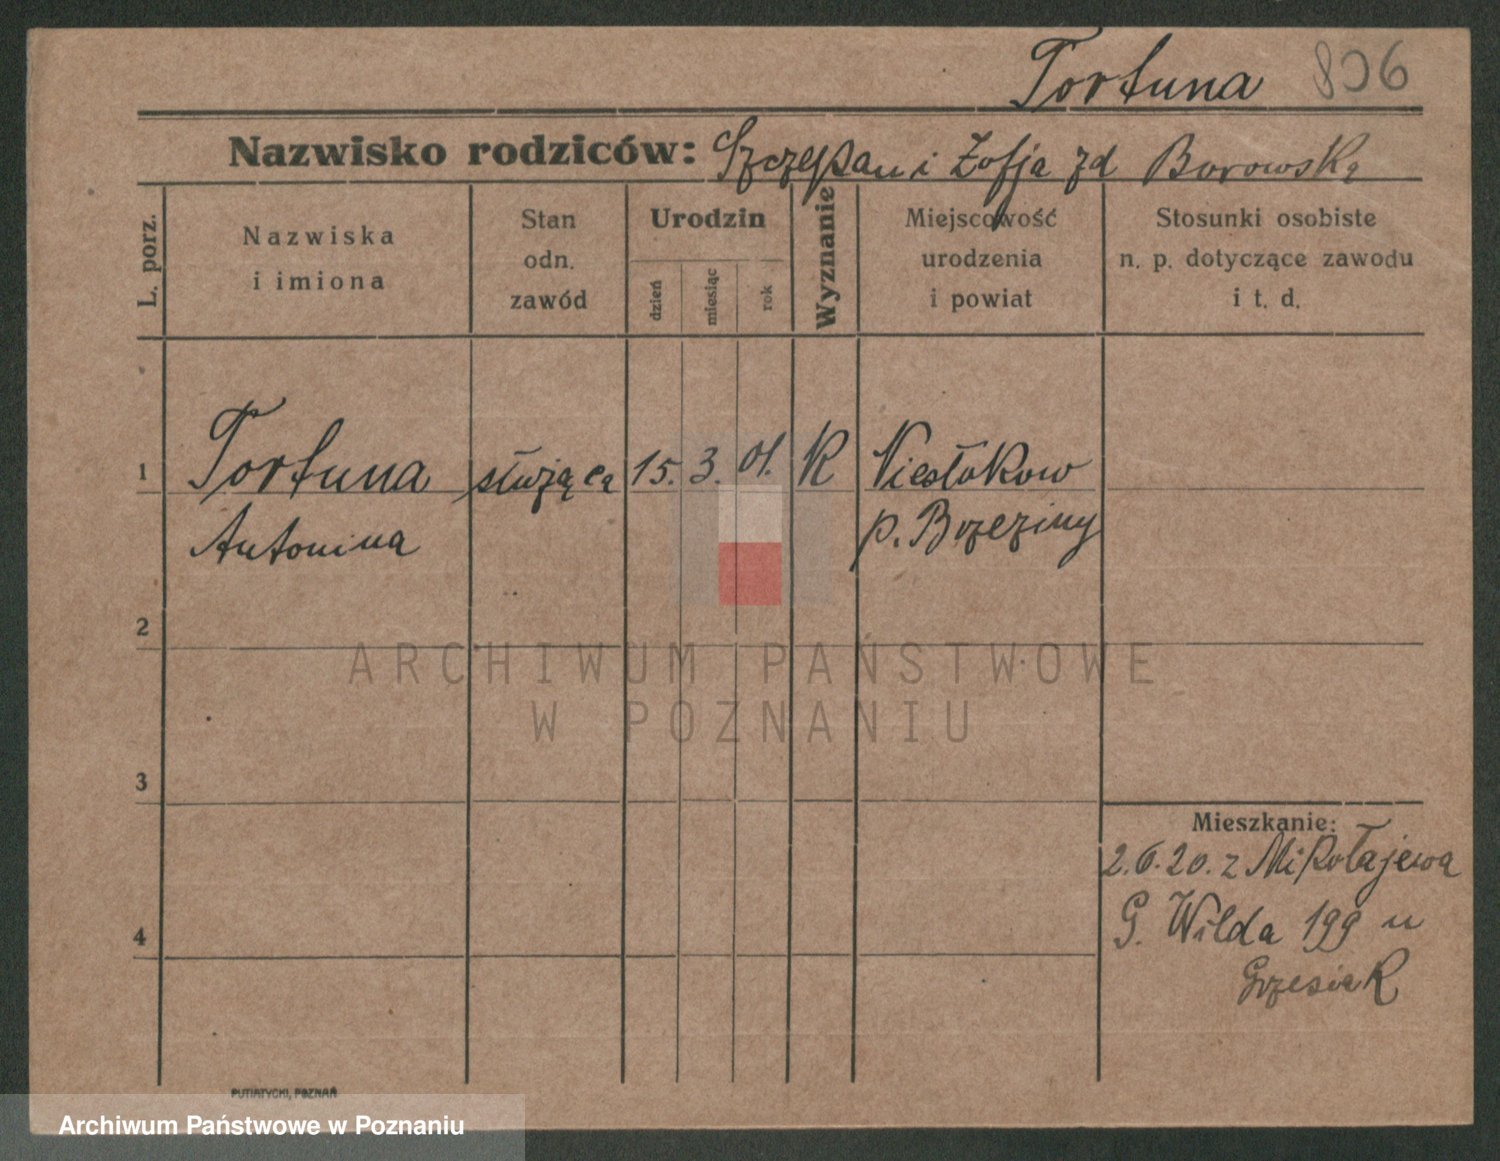 Tortuna 806
Nazwisko rodziców: Szczepan i Zofja zd Borowską
L. porz.
Nazwiska
i imiona
Stan
odn.
zawód
Urodzin
dzień
miesiąc
rok
Wyznanie
Miejscowość
urodzenia
i powiat
Stosunki osobiste
n. p. dotyczące zawodu
i t. d.
1 Tortuna służąca 15. 3. 01. K Niesłukow
Antonina p. Brzeziny
2
3
4
Mieszkanie:
2.6.20. z Mikołajewa
G. Wilda 199 u
Grzesiak
PUTIATYCKI, POZNAŃ
ARCHIWUM PAŃSTWOWE
W POZNANIU
Archiwum Państwowe w Poznaniu